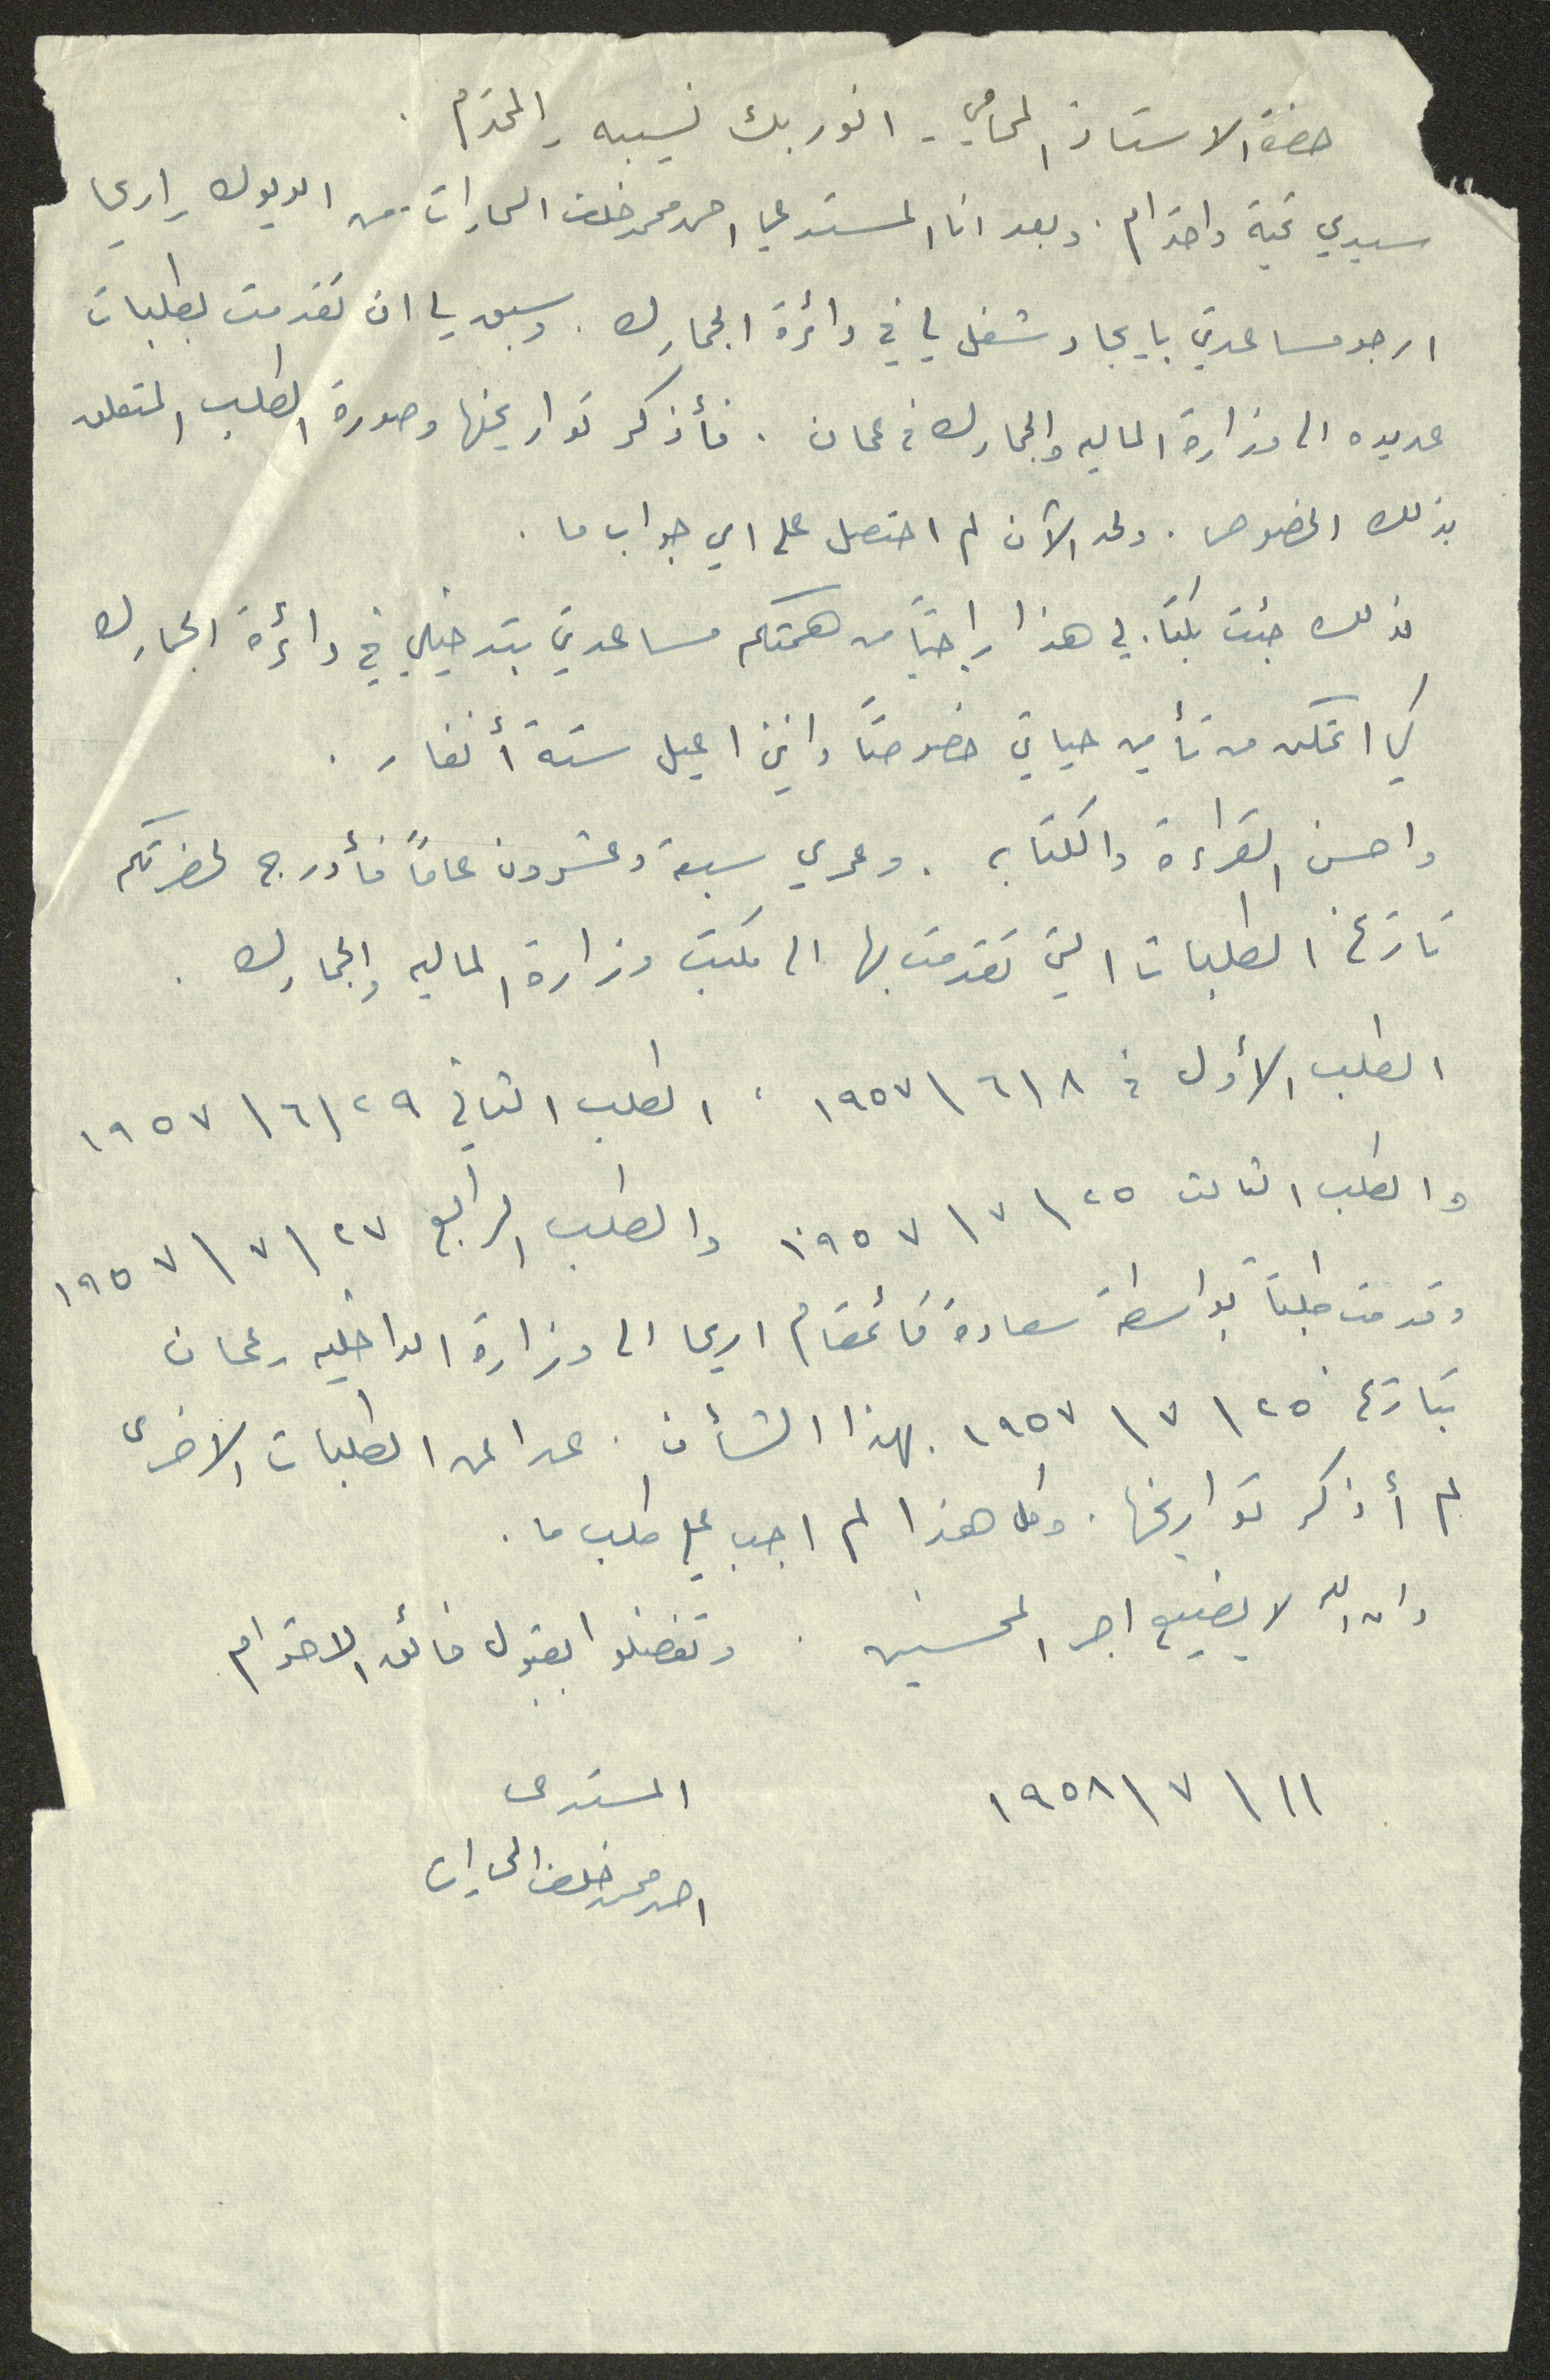 حضرة الاستاذ المحامي - انور بك نسيبه - المحترم .
سيدي تحية واحترام . وبعد انا المستدعي احمد محمد خلف من الديوك - اريحا
ارجو مساعدتي بايجاد شغل لي في دائرة الجمارك . وسبق لي ان تقدمت بطلبات
عديده الى وزارة الماليه والجمارك في عمان . فأذكر تواريخها وصورة الطلب المتعلق
بذلك الخصوص . ولحد الآن لم احتصل على اي جواب ما .
لذلك جئت بكتابي هذا راجياً من همتكم مساعدتي بتدخيلي في دائرة الجمارك
كي اتمكن من تأمين حياتي خصوصاً وانني اعيل ستة أنفار .
واحسن القراءة والكتابه . وعمري سبعة وعشرون عاماً فأدرج لحضرتكم
تاريخ الطلبات التي تقدمت بها الى مكتب وزارة الماليه والجمارك .
الطلب الأول في ٨ \ ٦ \ ١٩٥٧ ، الطلب الثاني ٢٩ \ ٦ \ ١٩٥٧
والطلب الثالث ٢٥ \ ٧ \ ١٩٥٧ والطلب الرابع ٢٧ \ ٧ \ ١٩٥٧
وقدمت طلباً بواسطة سعادة قائمقام اريحا الى وزارة الداخليه - عمان
بتاريخ ٢٥ \ ٧ \ ١٩٥٧ بهذا الشأن . عدا عن الطلبات الاخرى
لم أذكر تواريخها . وكل هذا لم اجب على طلب ما .
وان الله لا يضيع اجر المحسنين . وتفضلوا بقبول فائق الاحترام
١١ \ ٧ \ ١٩٥٨
المستدعى
احمد محمد خلف